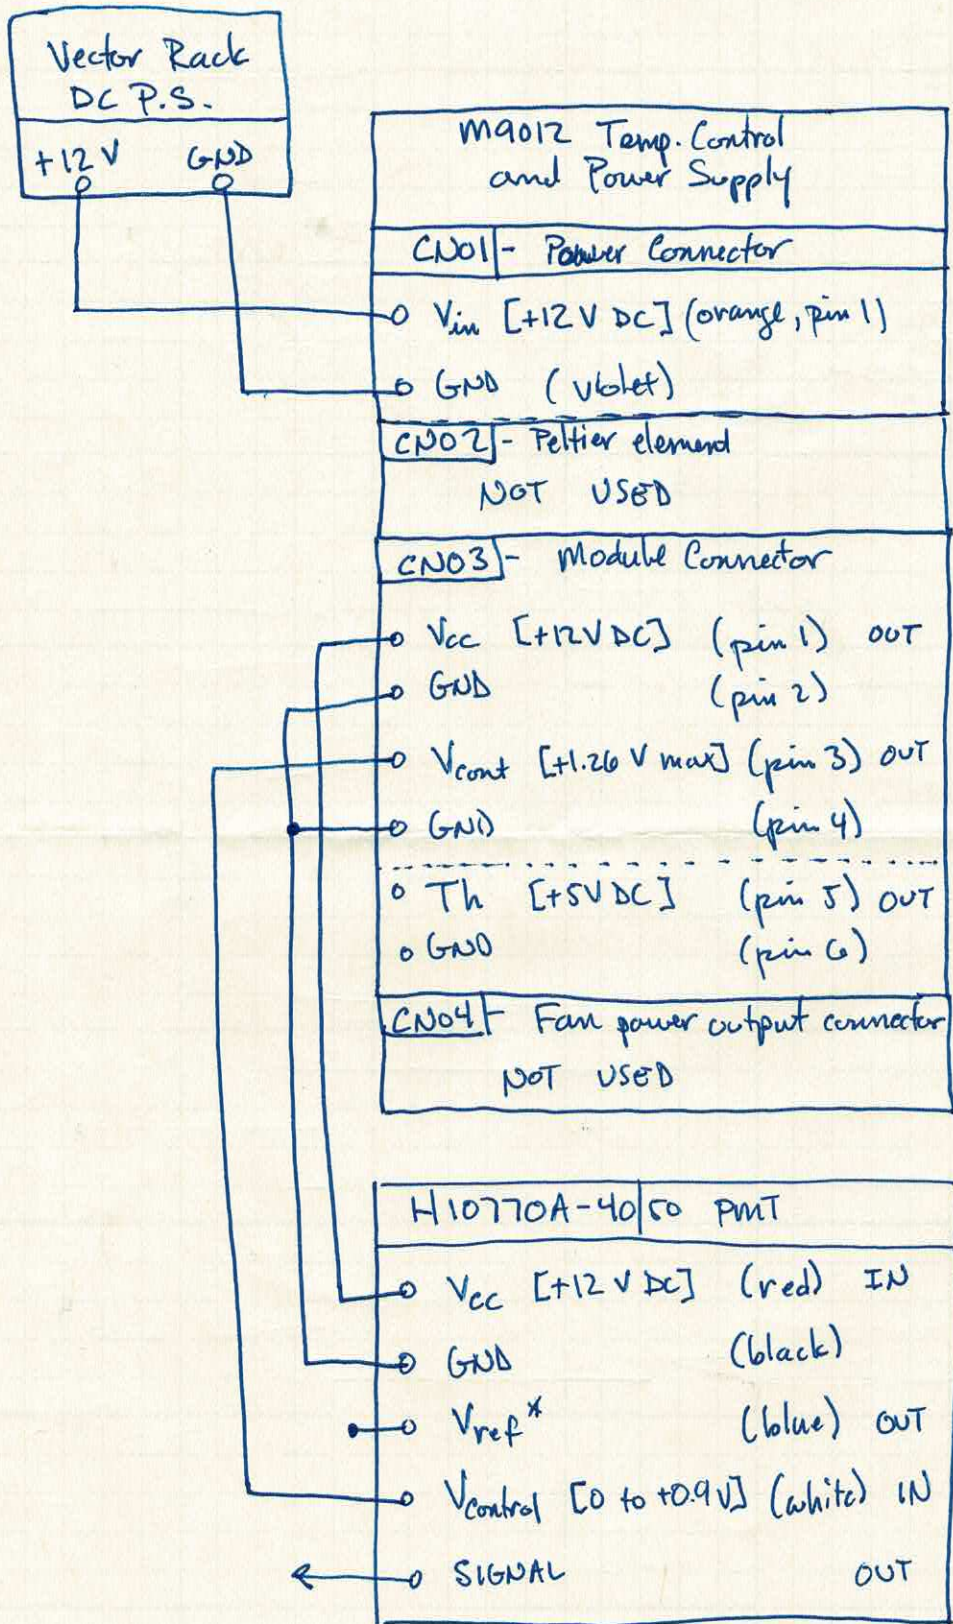 Vector Rack
DC P.S.
+12 V GND
M9012 Temp. Control
and Power Supply
CN01 - Power Connector
Vin [+12 V DC] (orange, pin 1)
GND (violet)
CN02 - Peltier element
NOT USED
CN03 - Module Connector
Vcc [+12V DC] (pin 1) OUT
GND (pin 2)
Vcont [+1.26 V max] (pin 3) OUT
GND (pin 4)
Th [+5V DC] (pin 5) OUT
GND (pin 6)
CN04 - Fan power output connector
NOT USED
H10770A-40/50 PMT
Vcc [+12 V DC] (red) IN
GND (black)
Vref* (blue) OUT
Vcontrol [0 to +0.9V] (white) IN
SIGNAL OUT